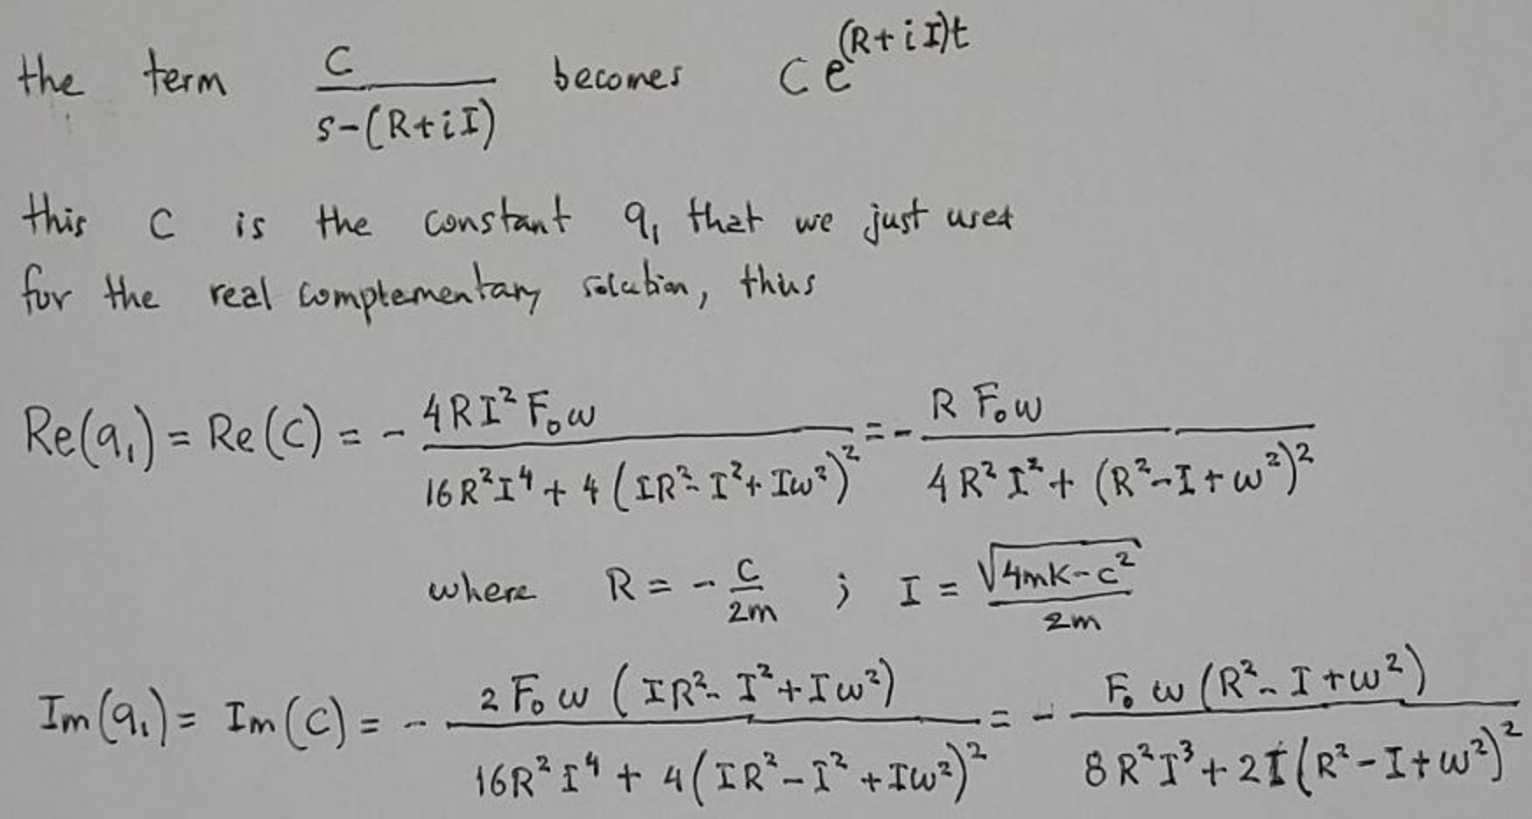 the term C / (s-(R+iI)) becomes C e^((R+iI)t)
this C is the constant q₁ that we just used
for the real complementary solution, thus
Re(q₁) = Re(C) = - 4RI²F₀ω / (16R²I⁴ + 4(IR² - I² + Iω²)²) = - R F₀ω / (4R²I² + (R² - I + ω²)²)
where R = - c/2m ; I = √(4mk-c²) / 2m
Im(q₁) = Im(C) = - 2F₀ω(IR² - I² + Iω²) / (16R²I⁴ + 4(IR² - I² + Iω²)²) = - F₀ω(R² - I + ω²) / (8R²I³ + 2I(R² - I + ω²)²)